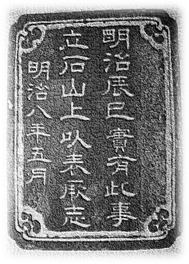 明治辰巳實有此事
立石山上以表厥志
明治八年五月